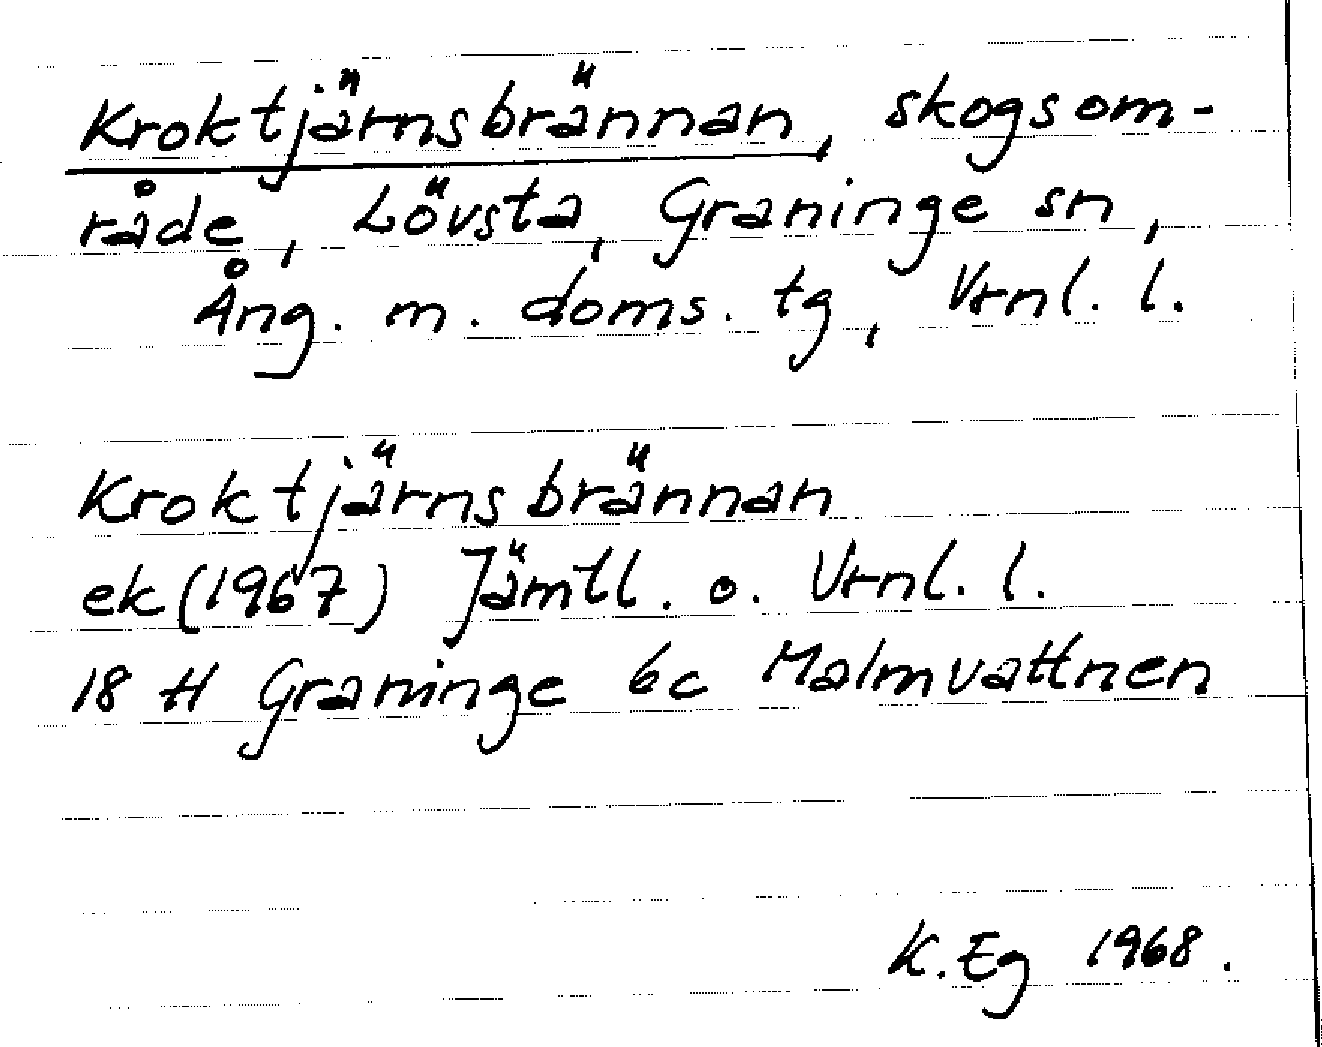 Kroktjärnsbrännan, skogsom-
råde, Lövsta, Graninge sn,
Ång. m. doms. tg, Vrnl. l.
Kroktjärnsbrännan
ek (1967) Jämtl. o. Vrnl. l.
18 H Graninge 6c Malmvattnen
K. Eg 1968.